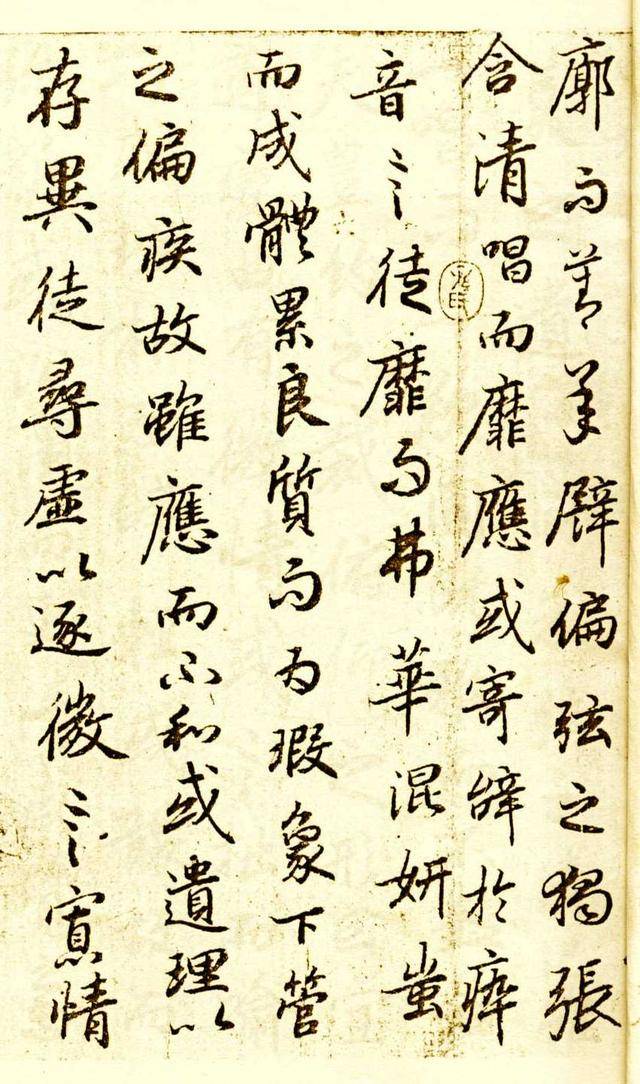 廓而莫承譬偏弦之獨張
含清唱而靡應或寄辭於瘁
音言徒靡而弗華混妍蚩
而成體累良質而為瑕象下管
之偏疾故雖應而不和或遺理以
存異徒尋虛以逐微言寡情